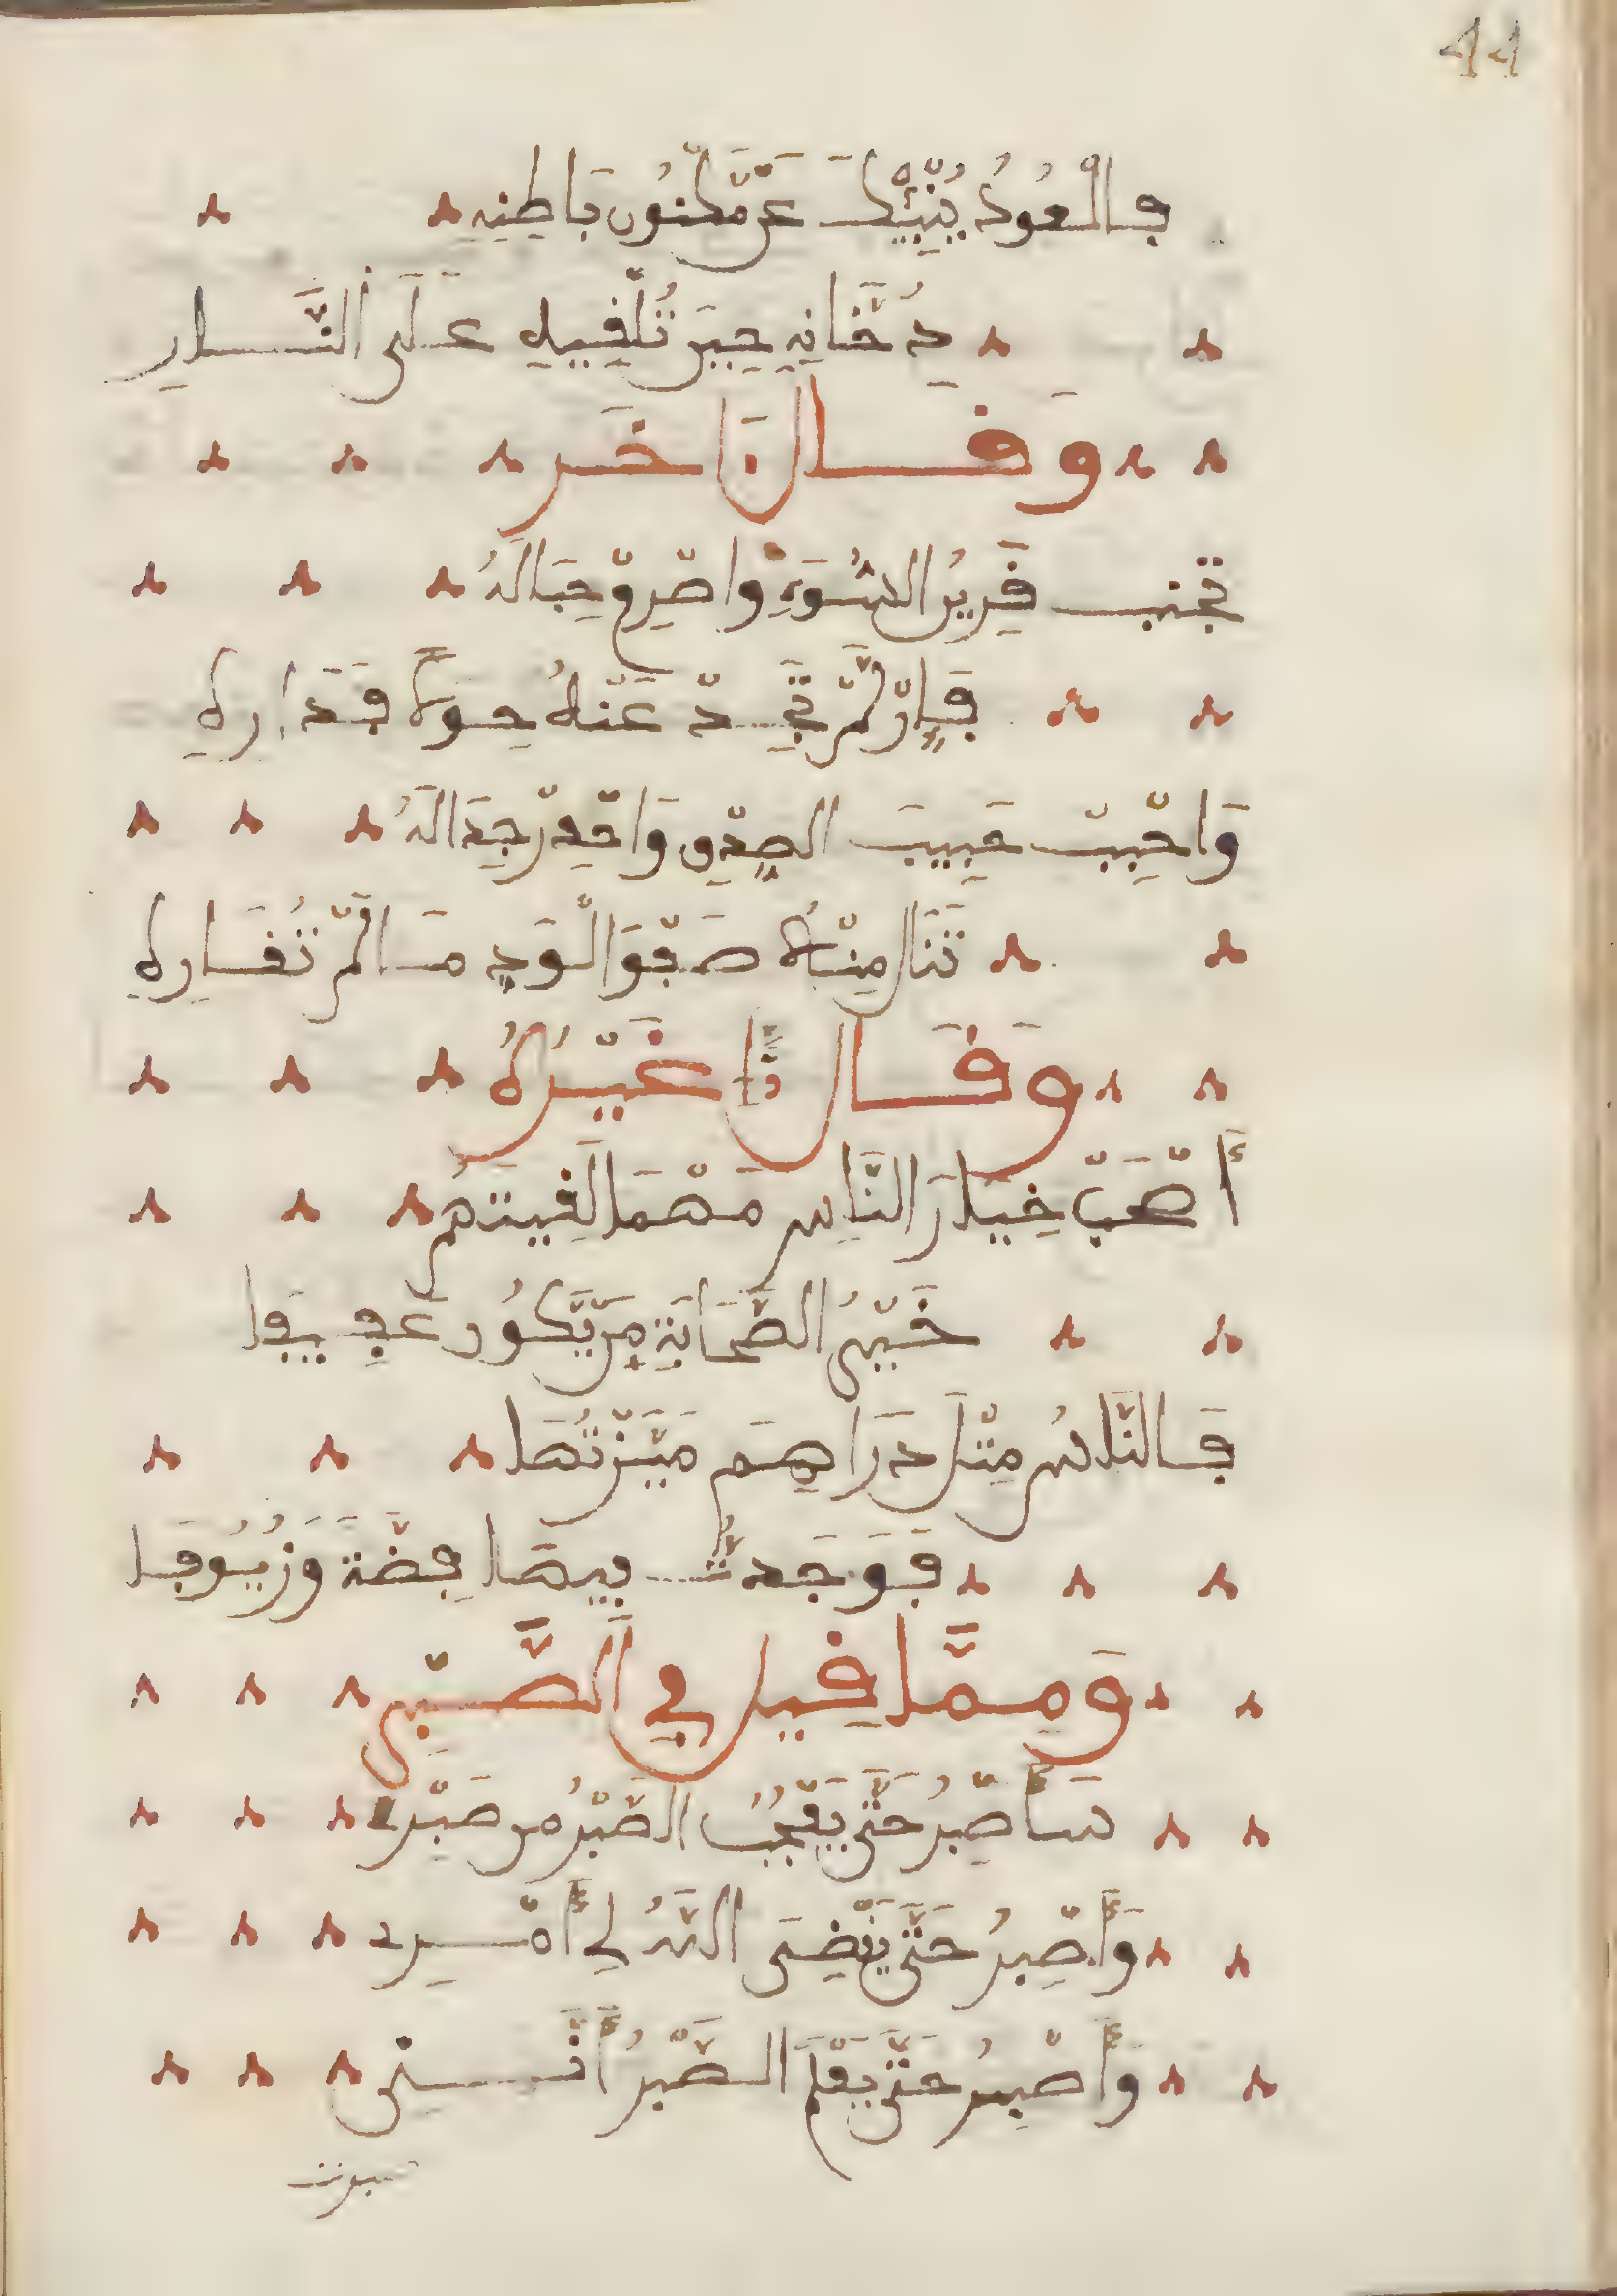 44
فَالْعُودُ يُنْبِئُكَ عَنْ مَّكْنُونِ بَاطِنِهِ
دُخَّانِهِ حِينَ تُلْفِيهِ عَلَى النَّارِ
وَقَالَ ءَاخَرُ
تجنب قَرِينَ السُّوءِ وَاصْرِمْ حِبَالَهُ
فَإِن لَّمْ تَجِدْ عَنْهُ محِيصًا فَدَارِهِ
وَاحْبِبْ حَبِيبَ الصِّدْقِ وَاحْذَرْ جِدَالَهُ
تَنَالُ مِنْهُ صَفْوَ الْوَدِّ مَا لَمْ تُمَارِهِ
وَقَالَ أيْضًا غَيْرُهُ
أَصْحَبْ خِيَارَ النَّاسِ مَهْمَا لَقِيتَهُمْ
خَيْرُ الصَّحَابَةِ مَن يَّكُونُ عَفِيفَا
فَالنَّاسُ مِثْلُ دَرَاهِمَ مَيَّزْتُهَا
فَوَجَدتُّ فِيهَا فِضَّةً وَزُيُوفَا
وَمِمَّا قِيلَ فِي الصَّبْرِ
سَأَصْبِرُ حَتَّى يَعْجِبَ الصَّبْرُ مِن صَبْرِي
وَأَصْبِرُ حَتَّى يَقْضِيَ اللَّهُ لِي أَمْرِي
وَأَصْبِرُ حَتَّى يَعْلَمَ الصَّبْرُ أَنَّنِي
صبرت